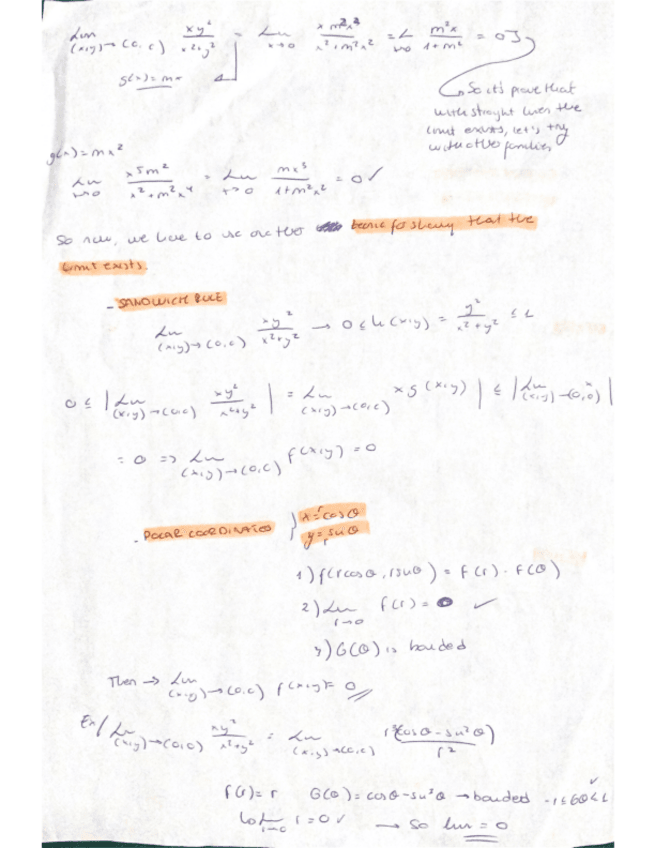 Lim (x,y)→(0,0) xy²/x²+y² = Lim x→0 x m²x²/x²+m²x² = L x→0 m²x/1+m² = 0
g(x)=mx
So it's prove that
with straight lines the
limit exists, let's try
with other families
g(x)=mx²
Lim x→0 x⁵m²/x²+m²x⁴ = Lim x→0 mx³/1+m²x² = 0 ✓
So now, we have to use another for showing that the
limit exists.
- SANDWICH RULE
Lim (x,y)→(0,0) xy²/x²+y² → 0 ≤ h(x,y) = y²/x²+y² ≤ 1
0 ≤ | Lim (x,y)→(0,0) xy²/x²+y² | = Lim (x,y)→(0,0) x g(x,y) | ≤ | Lim (x,y)→(0,0) x |
= 0 => Lim (x,y)→(0,0) f(x,y) = 0
- POLAR COORDINATES } x=rcosθ
y=rsinθ
1) f(rcosθ, rsinθ) = F(r) · F(θ)
2) Lim r→0 f(r) = 0 ✓
3) G(θ) is bouded
Then → Lim (x,y)→(0,0) f(x,y) = 0
Ex/ Lim (x,y)→(0,0) xy²/x²+y² = Lim (x,y)→(0,0) r³(cosθ-sin²θ)/r²
F(r) = r G(θ) = cosθ-sin²θ → bouded -1≤G(θ)≤1 ✓
Lim r→0 r = 0 ✓ → So lim = 0